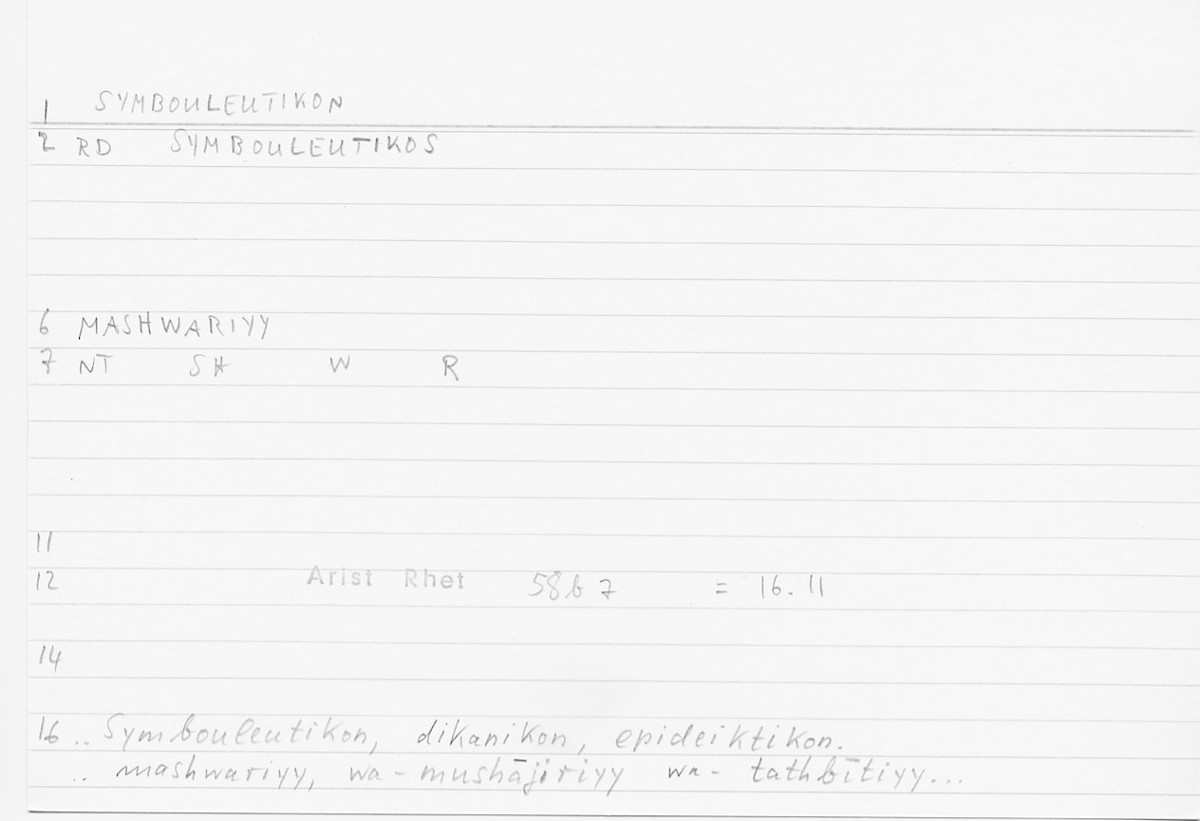 1 SYMBOULEUTIKON
2 RD SYMBOULEUTIKOS
6 MASHWARIYY
7 NT SH W R
11
12 Arist Rhet 58b7 = 16.11
14
16 .. Symbouleutikon, dikanikon, epideiktikon.
.. mashwariyy, wa-mushājiriyy wa-tathbītiyy...